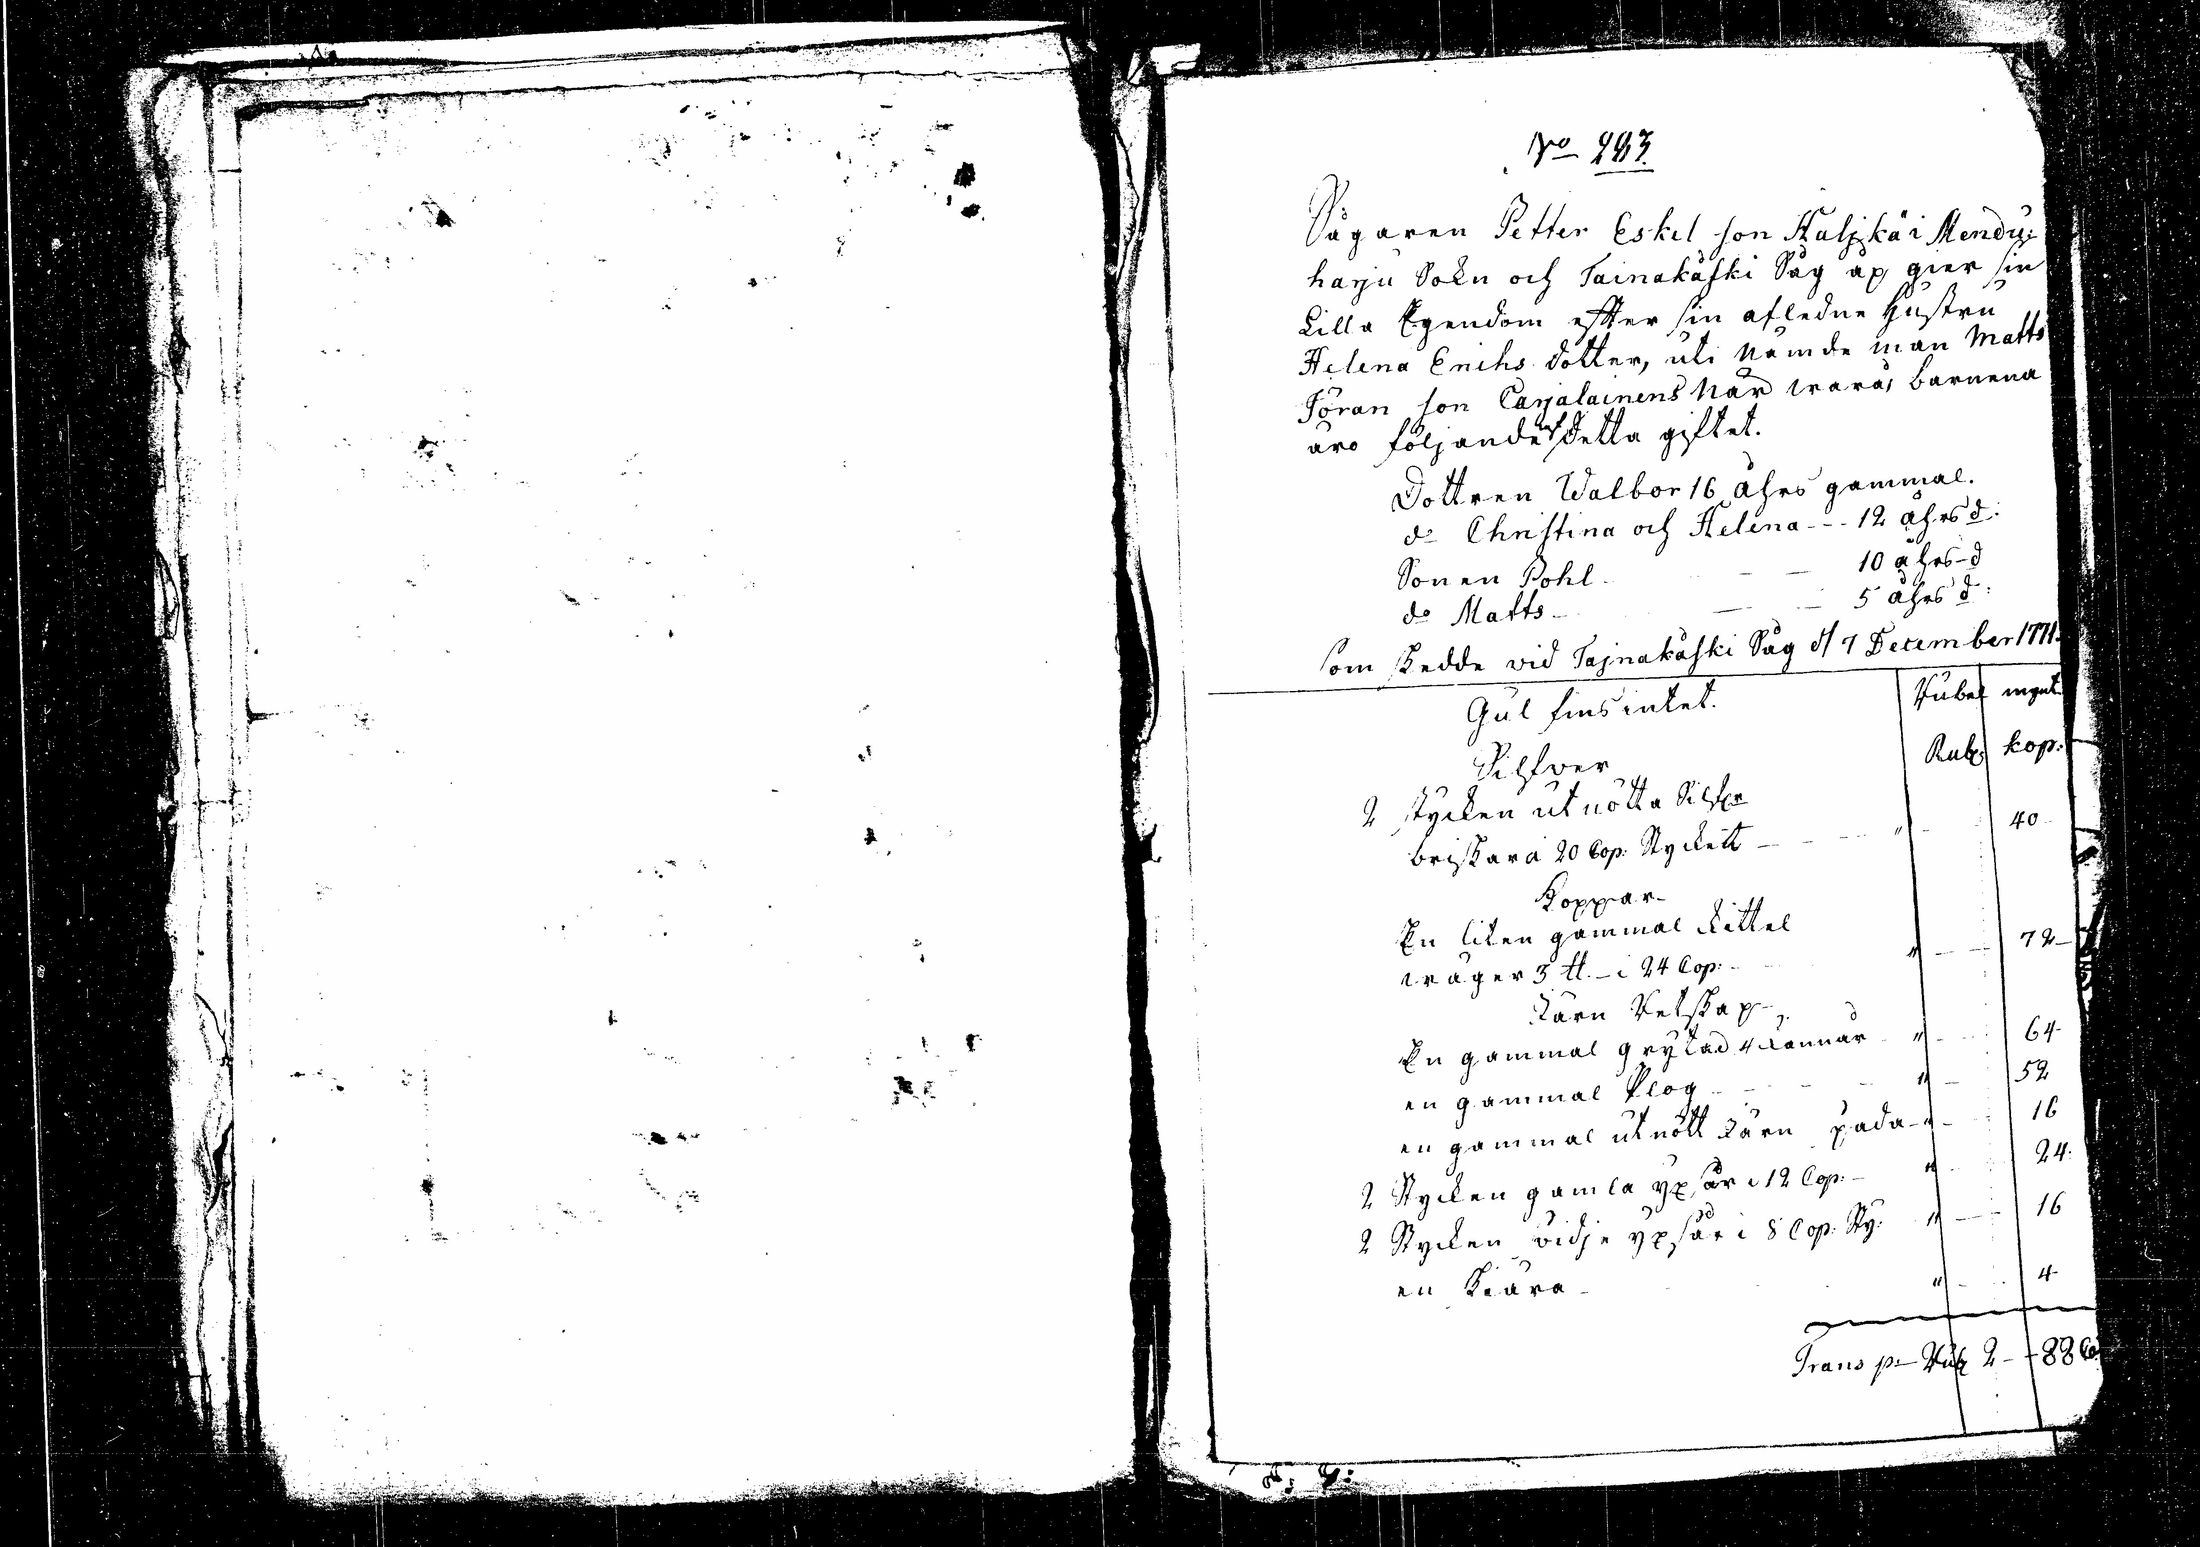 No 223
Sågaren Petter Eskel son Haljkä i Mendu:
harju Sokn och Tainakåski Såg åp gier sin
Lilla Egendom effter sin afledne Hustru
Helena Erichs dotter, uti Nämde man Matts
Jöran son Carjalainens När wara, barnena
äro följande af Detta giftet.
Dottren Walbor 16 åhrs gammal.
do Christina och Helena --- 12 åhrs d:
Sonen Pohl - — — 10 åhrs - d
do Matts - — — 5 åhrs d:
Som skedde vid Tajnakåski Såg d 7 December 1771.
Gul fins intet. Rubel mynt
Silfwer Rub: kop:
2 stycken utnötta Silfr
briskar a 20 Cop: Styckett — " - 40
Koppar
En liten gammal kittel
wäger 3 tt. - i 24 Cop: - " - 72
Järn Retskap
En gammal gryta ad 4 kannar " - 64
en gammal Plog - " - 52
en gammal utnött Järn pada - " - 16
2 Stycken gamla yxsar i 12 Cop: - " - 24:
2 Stycken widje yxsar i 8 Cop: Sty: " - 16
en Skiära - " - 4
Transp: Rub 2 - - 88 Co: